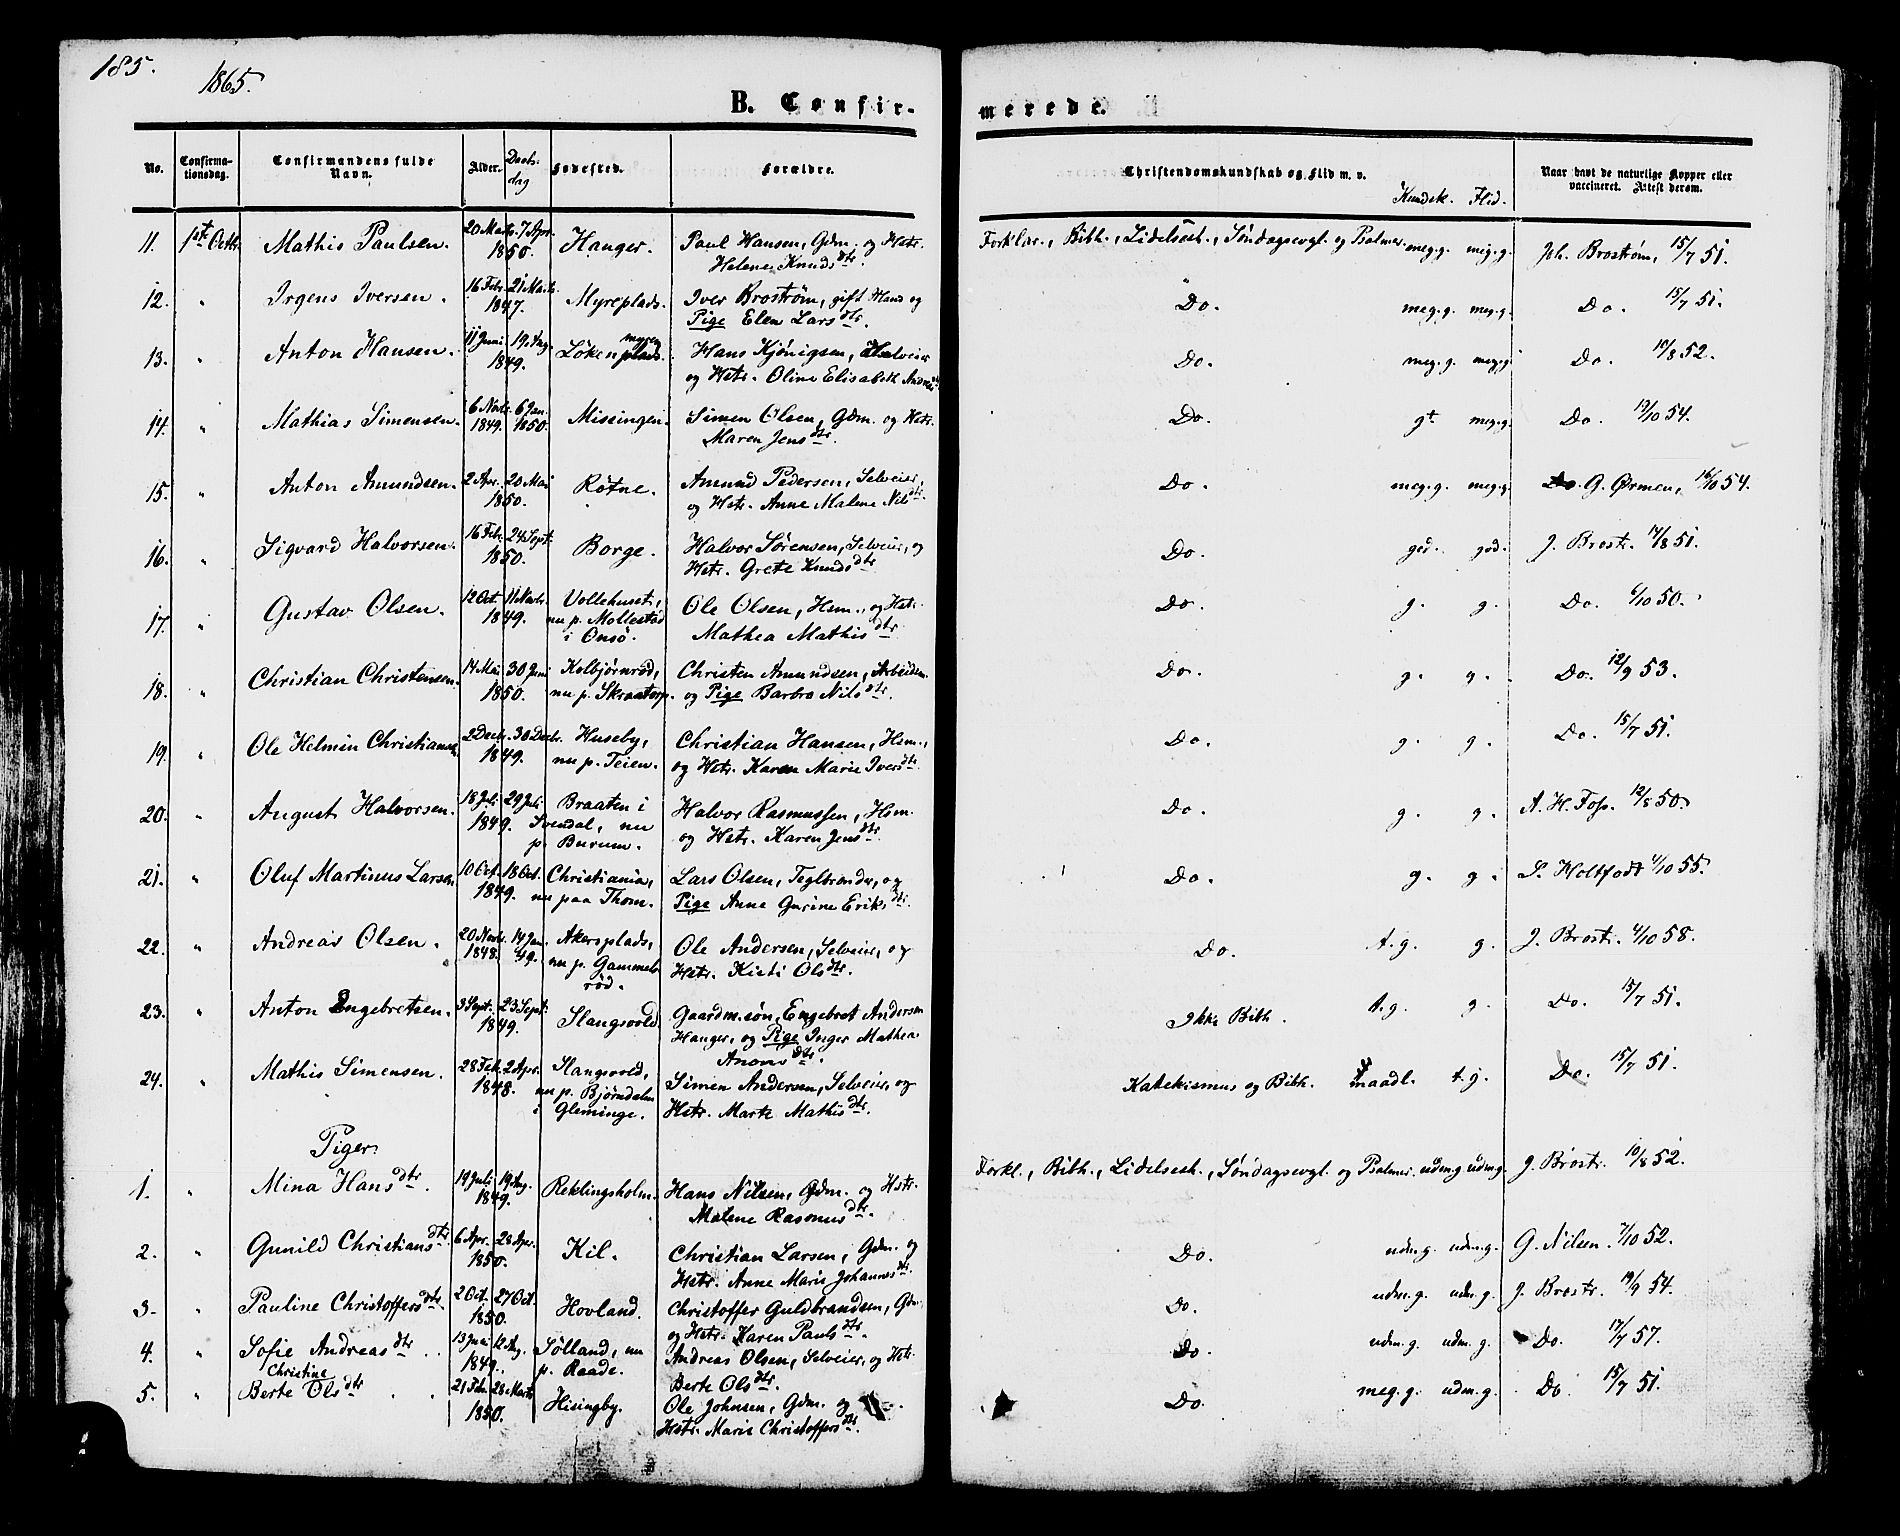 185.
1865.
B. Confir-
merede.
No.
Confirma-
tionsdag.
Confirmandens fulde
Navn.
Alder.
Daabs-
dag
Fødested.
Forældre.
Christendomskundskab og Flid m. v.
Kundsk. Flid.
Naar havt de naturlige Kopper eller
vaccineret. Attest derom.
11. 1ste Octbr. Mathis Paulsen. 20 Marts 7 Apr. 1850. Hanger. Paul Hansen, Gdm. og Hstr.
Helene Knudsdtr. Forklar., Bibh., Lidelsesh., Søndagsevgl. og Psalmer. meg.g. meg.g. Joh. Brostrøm, 15/7 51.
12. " Irgens Iversen. 16 Febr. 21 Marts 1847. Myreplads. Iver Brostrøm, gift Mand og
Pige Elen Larsdtr. Do. meg.g. meg.g. Do. 15/7 51.
13. " Anton Hansen. 11 Juni 19 Aug. 1849. Løkenmyren plads. Hans Kjönigsen, Selveier
og Hstr. Oline Elisabeth Do. meg.g. meg.g. Do. 10/8 52.
14. " Mathias Simensen. 6 Novbr. 1849. 6 Jan. 1850. Missingen. Simen Olsen, Gdm. og Hstr.
Maren Jensdtr. Do. gt meg.g. Do. 54.
15. " Anton Amundsen. 2 Apr. 20 Mai 1850. Røtne. Amund Pedersen, Selveier,
og Hstr. Anne Malene Nilsdtr. Do. meg.g. meg.g. Do. G. Ørmen, 16/10 54.
16. " Sigvard Halvorsen. 16 Febr. 24 Sept. 1850. Borge. Halvor Sørensen, Selveier, og
Hstr. Grete Knudsdtr. Do. god. god. J. Brostr. 51.
17. " Gustav Olsen. 12 Oct. 11 Novbr. 1849. Vollehuset,
nu p. Mollestad
i Onsö. Ole Olsen, Hsm., og Hstr.
Mathea Mathisdtr. Do. g. g. Do. 6/10 50.
18. " Christian Christensen. 14 Mai 30 Juni 1850. Kolbjörnröd,
nu p. Skraatorp. Christen Amundsen, Arbeidsm.
og Pige Barbro Nilsdtr. Do. g. g. Do. 12/9 53.
19. " Ole Helmin Christiansen. 2 Decbr. 30 Decbr. 1849. Huseby,
nu p. Teien. Christian Hansen, Hsm.,
og Hstr. Karen Marie Iversdtr. Do. g. g. Do. 15/7 51.
20. " August Halvorsen. 18 Juli 29 Juli 1849. Braaten i
Svendal, nu
p. Burum. Halvor Rasmussen, Hsm.
og Hstr. Karen Jensdtr. Do. g. g. A. H. Foss. 12/8 50.
21. " Oluf Martinus Larsen 10 Oct. 18 Oct. 1849. Christiania,
nu paa Thom. Lars Olsen, Teglbrænder, og
Pige Anne Gurine Eriksdtr. Do. g. g. S. Holtfodt 4/10 55.
22. " Andreas Olsen. 20 Novbr. 1848. 14 Jan. 49. Akersplads,
nu p. Gammels-
röd. Ole Andersen, Selveier, og
Hstr. Kisti Olsdtr. Do. t.g. g. J. Brostr. 4/10 58.
23. " Anton Engebretsen. 3 Sept. 23 Sept. 1849. Slangsvold. Gaardm.søn, Engebret Andersen
Hanger, og Pige Inger Mathea
dtr. Ikke Bibh. t.g. g. Do. 15/7 51.
24. " Mathis Simensen. 28 Feb. 2 Apr. 1848. Slangsvold,
nu p. Björndalen
i Gleminge. Simen Andersen, Selveier, og
Hstr. Marte Mathisdtr. Katekismus og Bibh. maadl. t.g. Do. 15/7 51.
Piger.
1. " Mina Hansdtr. 14 Juli 19 Aug. 1849. Reklingsholm. Hans Nilsen, Gdm. og Hstr.
Malene Rasmusdtr. Forkl., Bibh., Lidelsesh., Søndagsevgl. og Psalmer. udm.g. udm.g. J. Brostr. 10/8 52.
2. " Gunild Christiansdtr. 6 Apr. 28 Apr. 1850. Kil. Christian Larsen, Gdm. og
Hstr. Anne Marie Johannesdtr. Do. udm.g. udm.g. G. Nilsen. 7/10 52.
3. " Pauline Christoffersdtr. 2 Oct. 27 Oct. 1850. Hovland. Christoffer Guldbrandsen, Gdm.
og Hstr. Karen Paulsdtr. Do. udm.g. udm.g. J. Brostr. 19/9 54.
4. " Sofie Andreasdtr. 13 Juni 12 Aug. 1849. Sølland, nu
p. Raade. Andreas Olsen, Selveier, og Hstr.
Berte Olsdtr. Do. udm.g. udm.g. Do. 17/7 57.
5. " Berte Christine Olsdtr. 21 Feb. 28 Marts 1850. Hisingby. Ole Johnsen, Gdm. og
Hstr. Marie Christoffersdtr. Do. meg.g. udm.g. Do. 15/7 51.